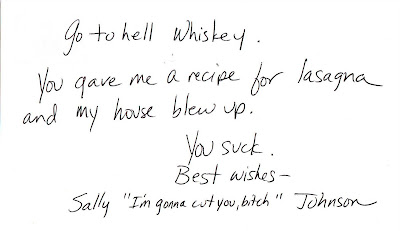 Go to hell Whiskey.
You gave me a recipe for lasagna
and my house blew up.
You suck.
Best wishes-
Sally "I'm gonna cut you, bitch" Johnson